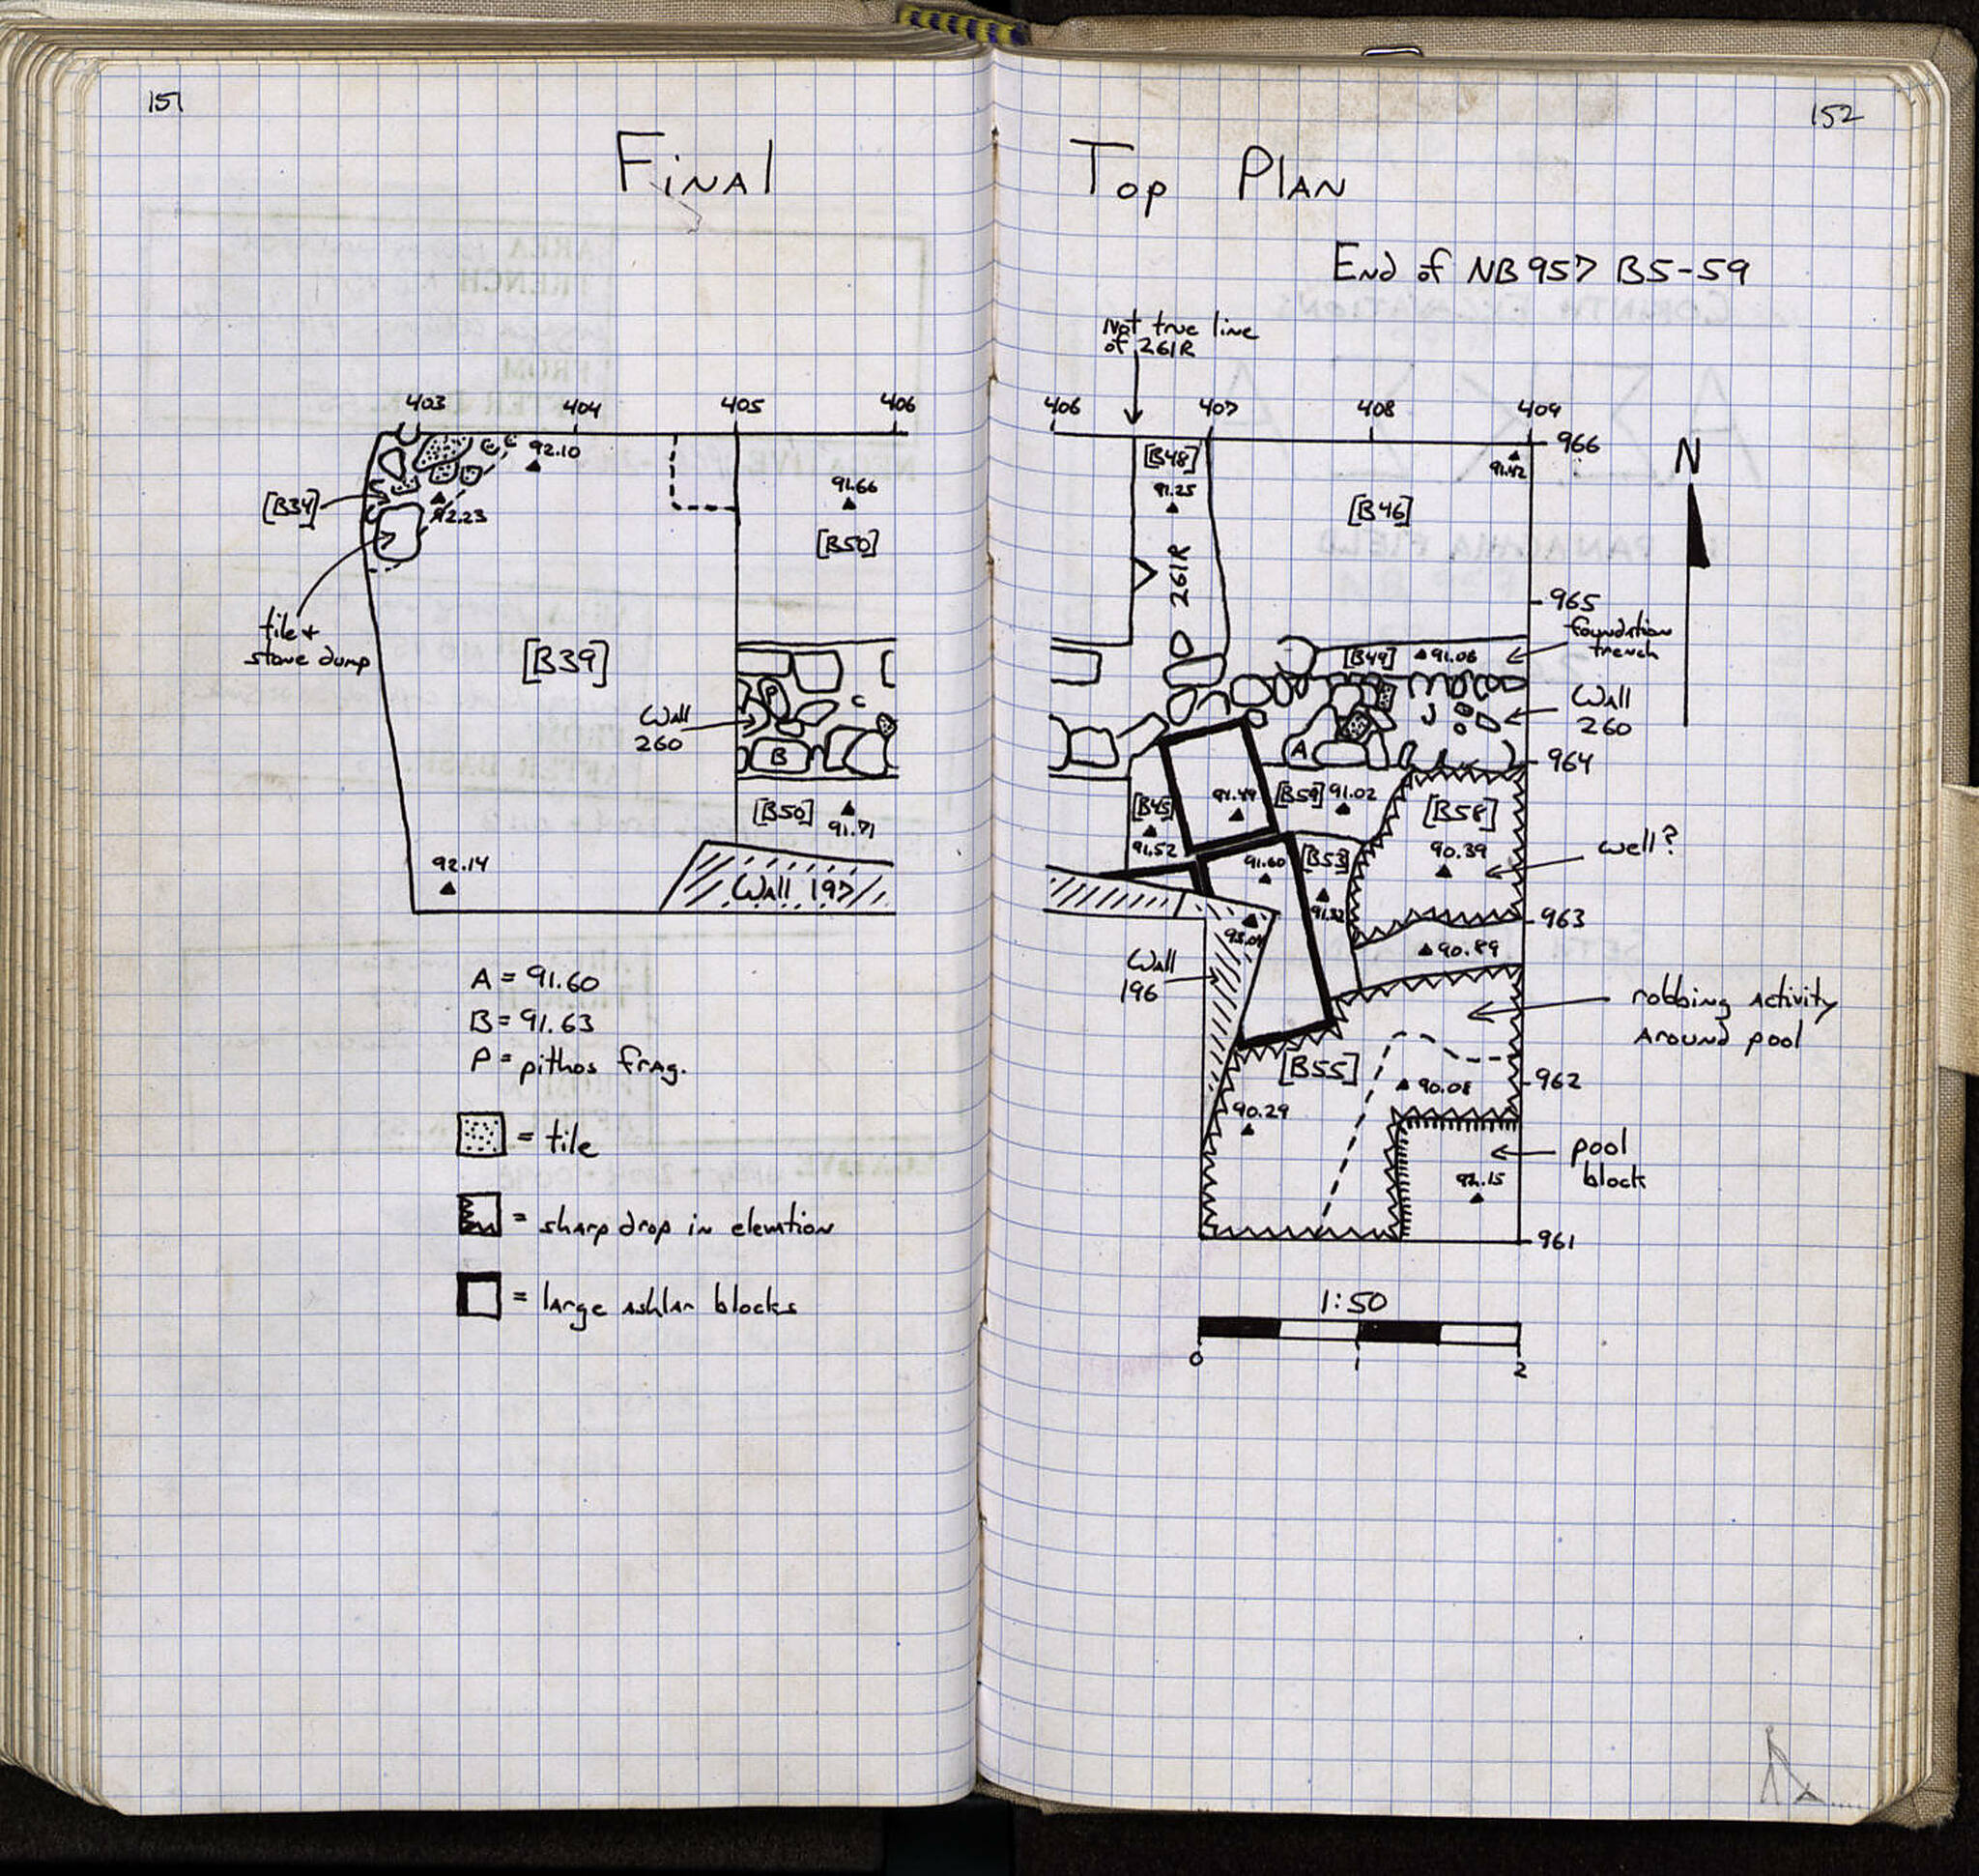 151
Final
403
404
405
406
92.10
[B34]
92.23
91.66
[B50]
tile +
stone dump
[B39]
Wall
260
P
c
B
[B50]
91.71
92.14
Wall 197
A = 91.60
B = 91.63
P = pithos frag.
= tile
= sharp drop in elevation
= large ashlar blocks
152
Top Plan
End of NB 957 B5-59
Not true line
of 261R
406
407
408
409
966
[B48]
91.25
[B46]
N
261R
965
foundation
trench
[B49]
91.06
Wall
260
A
964
[B45]
91.49
[B59]
91.02
[B58]
well?
91.52
91.60
[B53]
90.39
91.32
963
90.89
Wall
196
robbing activity
around pool
[B55]
962
90.08
90.29
pool
block
961
1:50
0
1
2